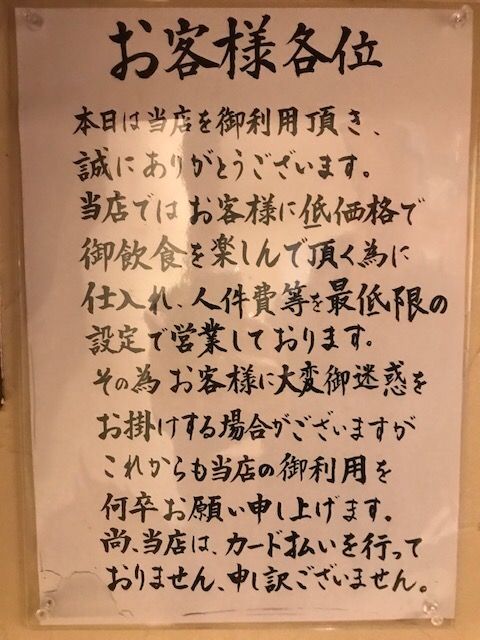 お客様各位
本日は当店を御利用頂き、
誠にありがとうございます。
当店ではお客様に低価格で
御飲食を楽しんで頂く為に
仕入れ、人件費等を最低限の
設定で営業しております。
その為お客様に大変御迷惑を
お掛けする場合がございますが
これからも当店の御利用を
何卒お願い申し上げます。
尚、当店は、カード払いを行って
おりません、申し訳ございません。